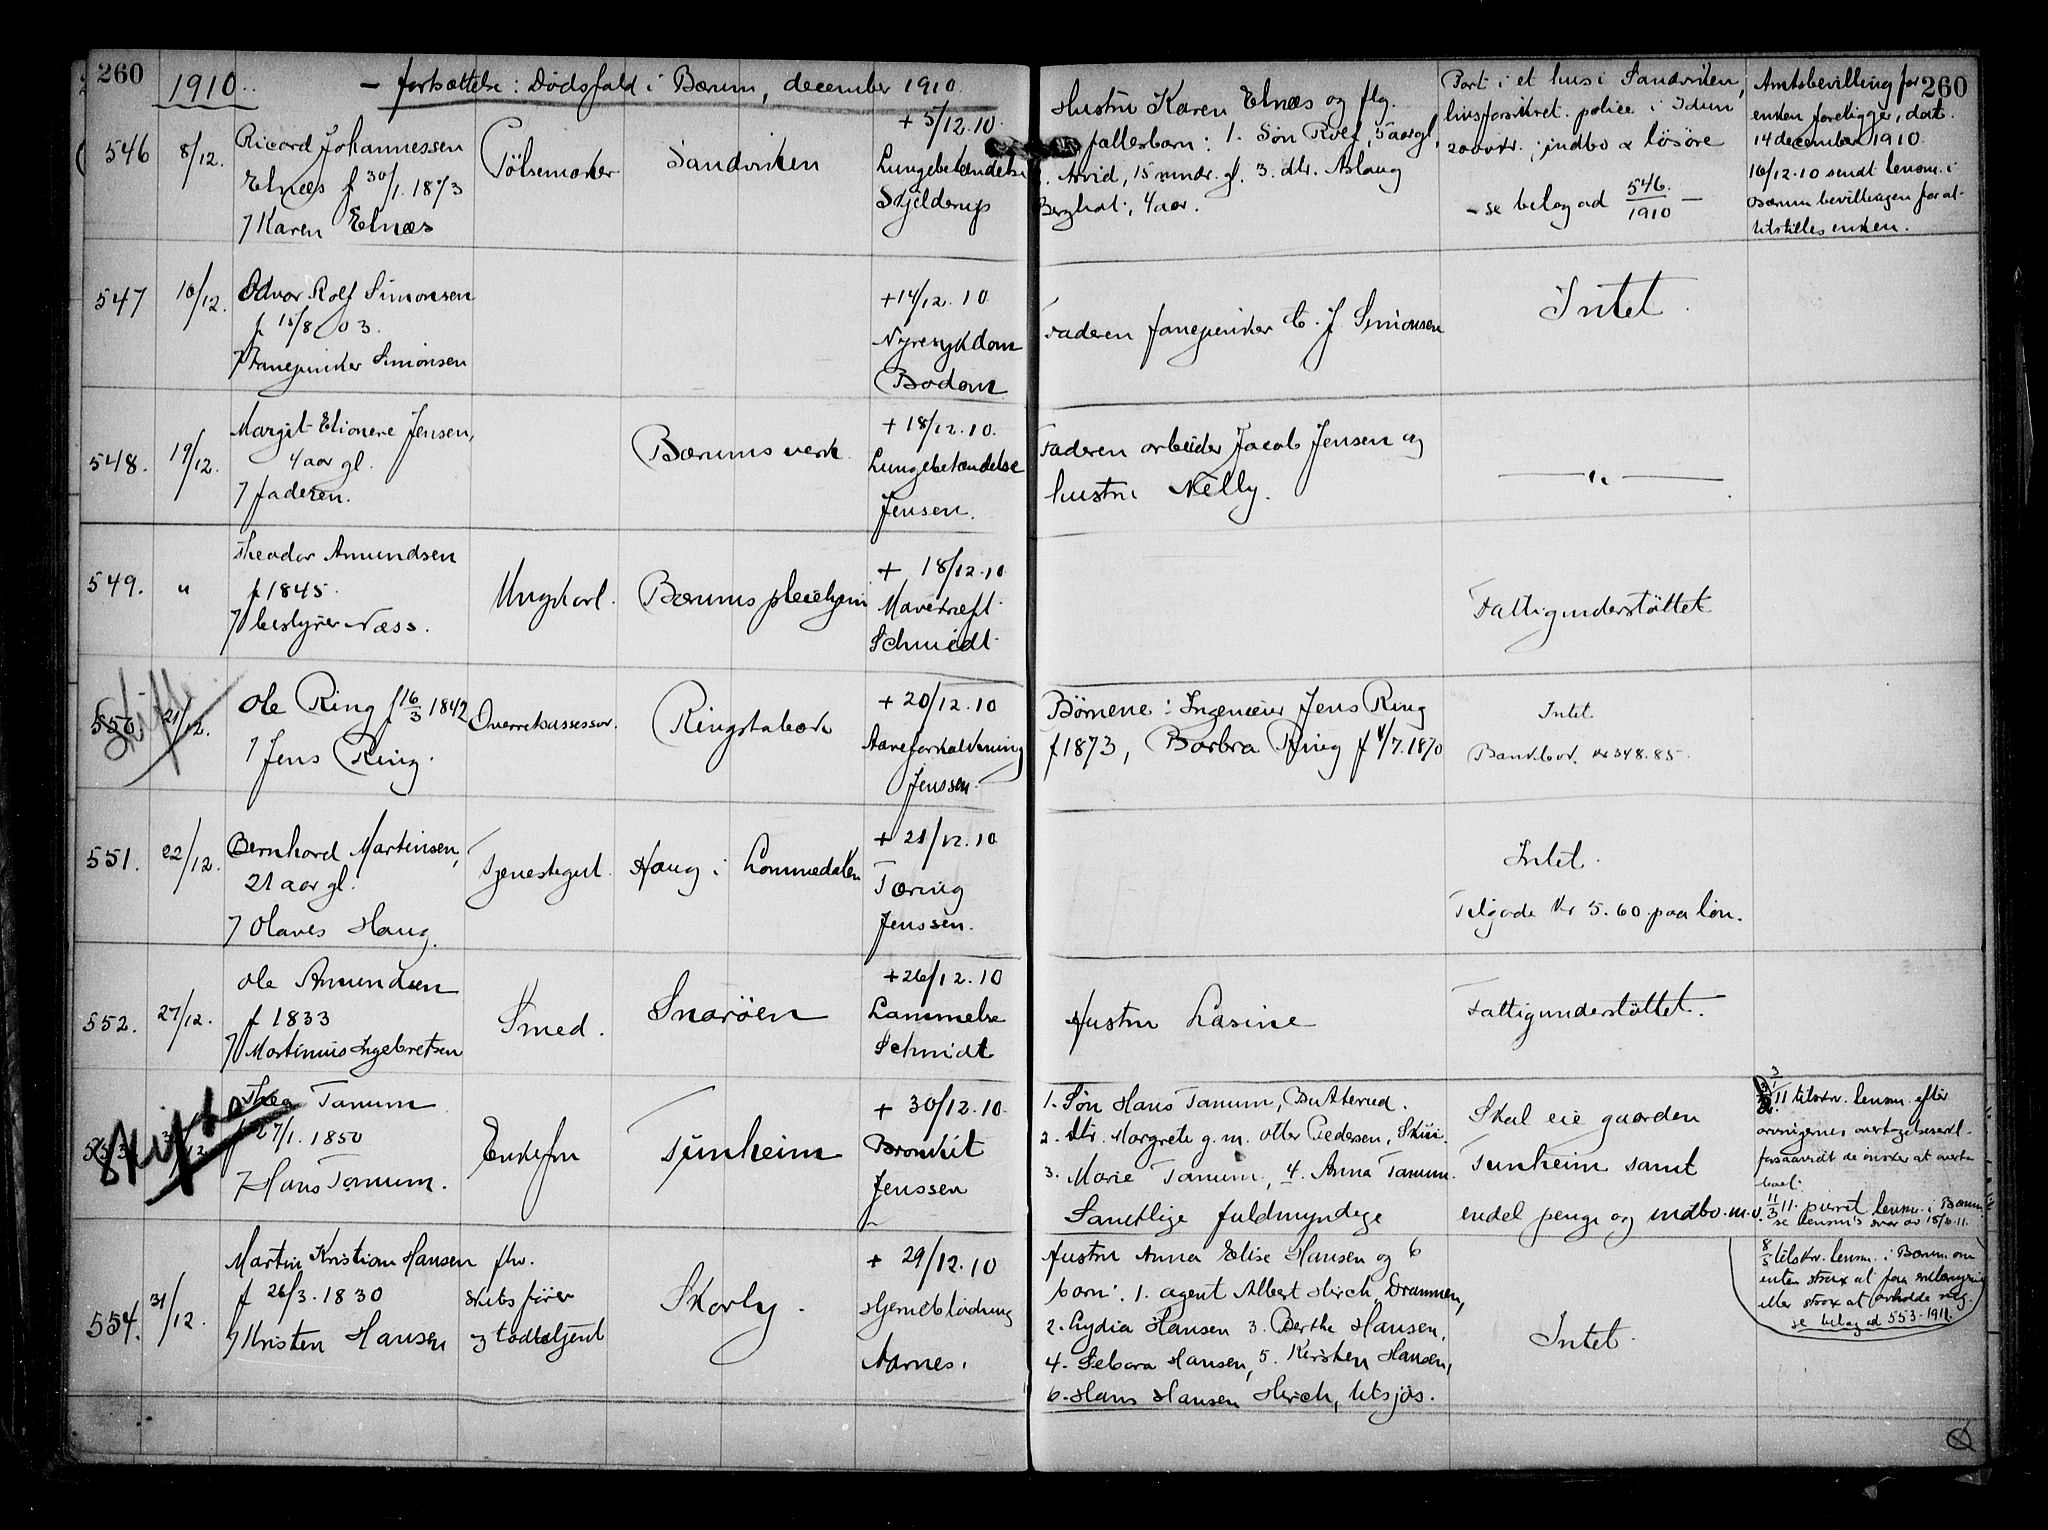 260
1910.
- fortsættelse : Dødsfald i Bærum, december 1910.
260
546
8/12.
Ricard Johannessen
Elnæs f 30/1. 1873
7 Karen Elnæs
Pölsemaker
Sandviken
+ 5/12.10.
Lungebetændelse
Skjelderup
Hustru Karen Elnæs og flg.
fællesbarn : 1. Søn Rolf, 5 aar gl,
Arvid, 15 mndr. gl. 3. dtr. Aslaug
Berghat, 4 aar.
Part i et hus i Sandviken,
livsforsikret. police i Idun
2000 kr. ; indbo & lösöre
- se bilag ad 546./1910 -
Amtsbevilling for
enken foreligger, dat.
14 december 1910.
16/12.10 sendt lensm. i
Bærum bevillingen for at
tilstilles enken.
547
16/12.
Odvar Rolf Simonsen
f 15/8 03.
7 Fanejunker Simonsen
+14/12. 10
Nyresykdom
Bodom
Faderen fanejunker C. J. Simonsen
Intet.
548.
19/12.
Margit Elionere Jensen,
4 aar gl.
7 faderen.
Bærums verk.
+ 18/12.10.
Lungebetændelse
Jensen.
Faderen arbeider Jacob Jensen og
hustru Nelly.
— " —
549.
"
Theodor Amundsen
f 1845.
7 bestyrer Næss.
Ungkarl.
Bærums pleiehjem
+ 18/12.10
Mavekræft.
Schmidt.
Fattigunderstöttet
Skifte
550.
21/12.
Ole Ring f 16/3 1842
7 Jens Ring.
Overretsassessor.
Ringstabæk
+ 20/12.10
Aareforkalkning
Jenssen.
Børnene : Ingeniør Jens Ring
f 1873, Barbra Ring f 4/7.1870
Intet.
Bankbok. kr 348.85.
551.
22/12.
Bernhard Martinsen,
21 aar gl.
7 Olaves Haug.
Tjenestegut.
Haug i Lommedalen
+ 21/12.10
Tæring
Jenssen.
Intet.
Tilgode kr 5.60. paa løn.
552.
27/12.
Ole Amundsen
f 1833
7 Martinius Ingebretsen
Smed.
Snaröen
+26/12.10
Lammelse
Schmidt
Hustru Lasine
Fattigunderstöttet.
Skifte
553.
Thea Tanum
27/1. 1850
7 Hans Tanum.
Enkefru
Tunheim
+ 30/12.10.
Bronkit
Jenssen
1. Søn Hans Tanum, Butterud.
2. dtr. Margrete g. m. Otter Pedersen, Skui.
3. Marie Tanum, 4. Anna Tanum.
Samtlige fuldmyndige
Skal eie gaarden
Tunheim samt
endel penge og indbo. m.v.
3/1 11 tilskr. lensm. efter
arvingernes overtagelseserkl.
forsaavidt de ønsker at overta
boet.
11/3 11. purret lensm. i Bærum.
se lensm's svar av 15/3.11.
8/5 tilskr. lensm. i Bærum om
enten strax at faa erklæring
eller strax at avholde reg.
se bilag ad 553-1911.
554.
31/12.
Martin Kristian Hansen
f 26/3. 1830
7 Kristen Hansen
fhv.
skibsfører
og toldbetjent
Skorly.
+ 29/12.10
Hjerneblödning
Aarnes.
Hustru Anna Elise Hansen og 6
barn : 1. agent Albert Hirch, Drammen,
2. Lydia Hansen 3. Berthe Hansen,
4. Debora Hansen, 5. Kirsten Hansen,
6. Hans Hansen Hirch, tilsjös.
Intet.